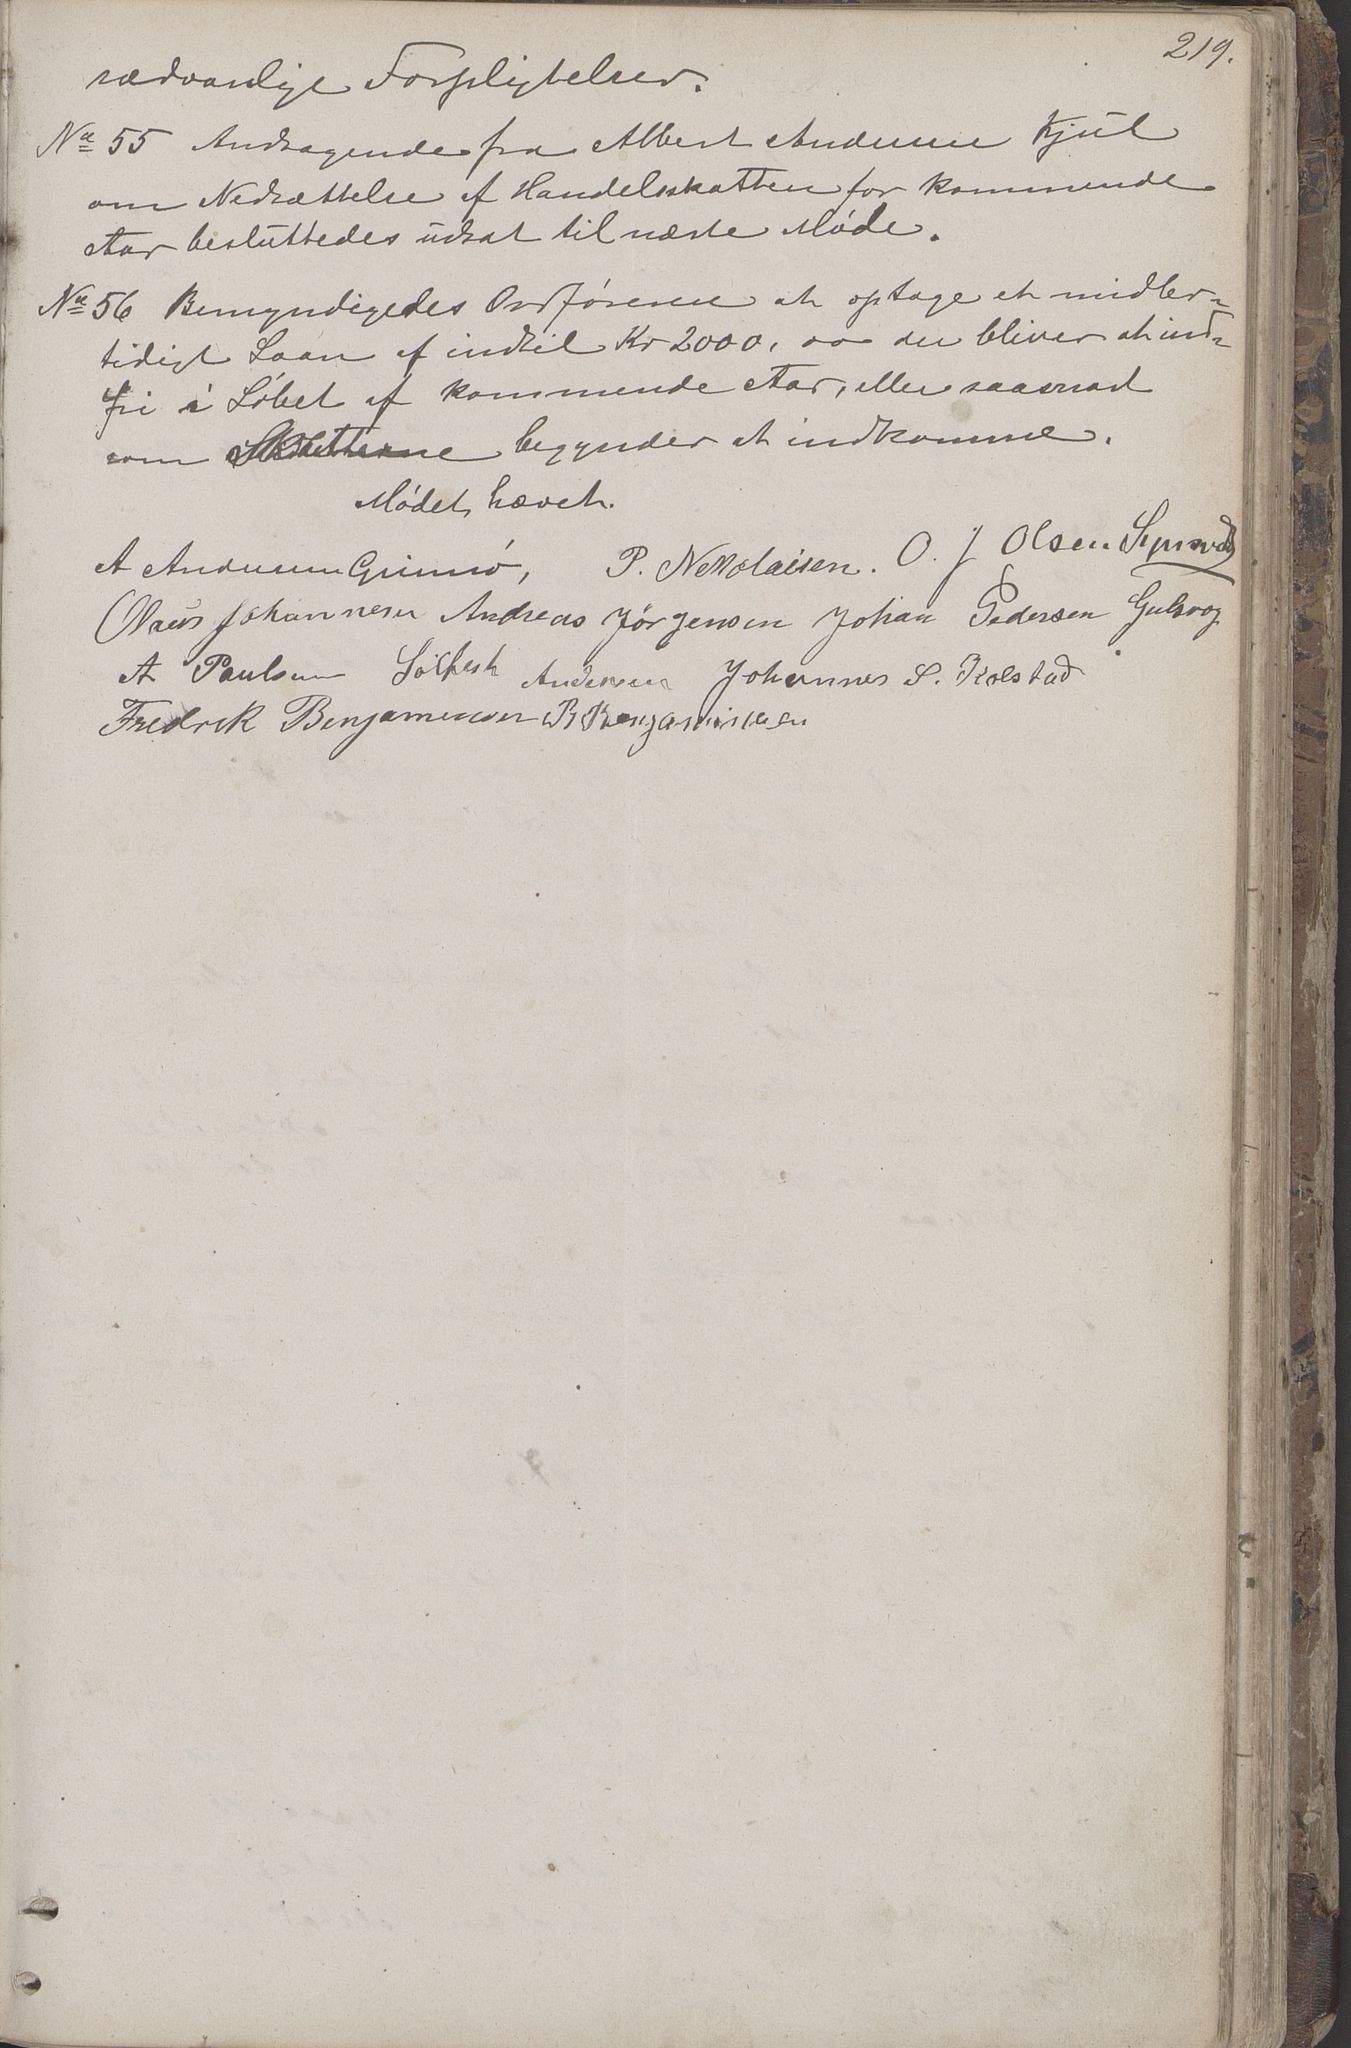 219.
sædvanlige Forpligtelser.
No 55 Andragende fra Albert Andersen Kjul
om Nedsættelse af Handelsskatten for kommende
Aar besluttedes udsat til næste Møde.
No 56 Bemyndigedes Ordføreren at optage et midler-
tidigt Laan af indtil Kr 2000, der bliver at ind-
fri i Løbet af kommende Aar, eller saasnart
som Skatterne begynder at indkomme.
Mødet hævet.
A Andersen Grimsø, P. Nekolaisen. O. J Olsen
Olaus Johannesen Andreas Jørgensen Johan Pedersen Gulvog
A Paulsen Andersen Johannes S. Kolstad
Fredrek Benjamensen B Benjaminsen